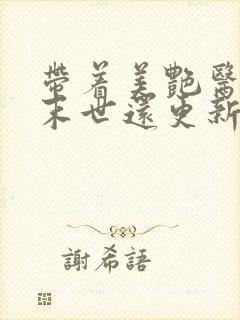 帶着美艷醫
末世還更新
謝希語